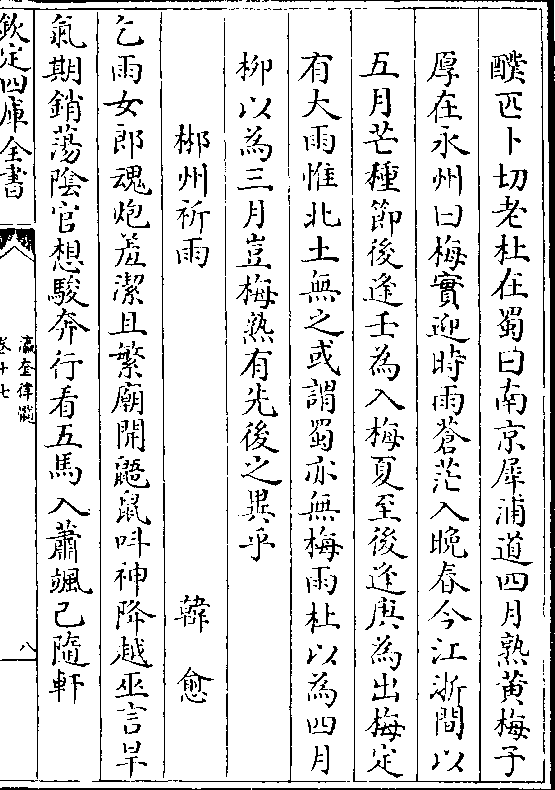 醭匹卜切老杜在蜀曰南京犀浦道四月熟黄梅子
厚在永州曰梅實迎時雨蒼茫入晚春今江浙間以
五月芒種節後逢壬為入梅夏至後逢庚為出梅定
有大雨惟北土無之或謂蜀亦無梅雨杜以為四月
柳以為三月豈梅熟有先後之異乎
郴州祈雨
韓愈
乞雨女郎魂炮羞潔且繁廟開鼯鼠呌神降越巫言旱
氣期銷蕩陰官想駿奔行看五馬入蕭颯已隨軒
欽定四庫全書
瀛奎律髓
卷十七
八